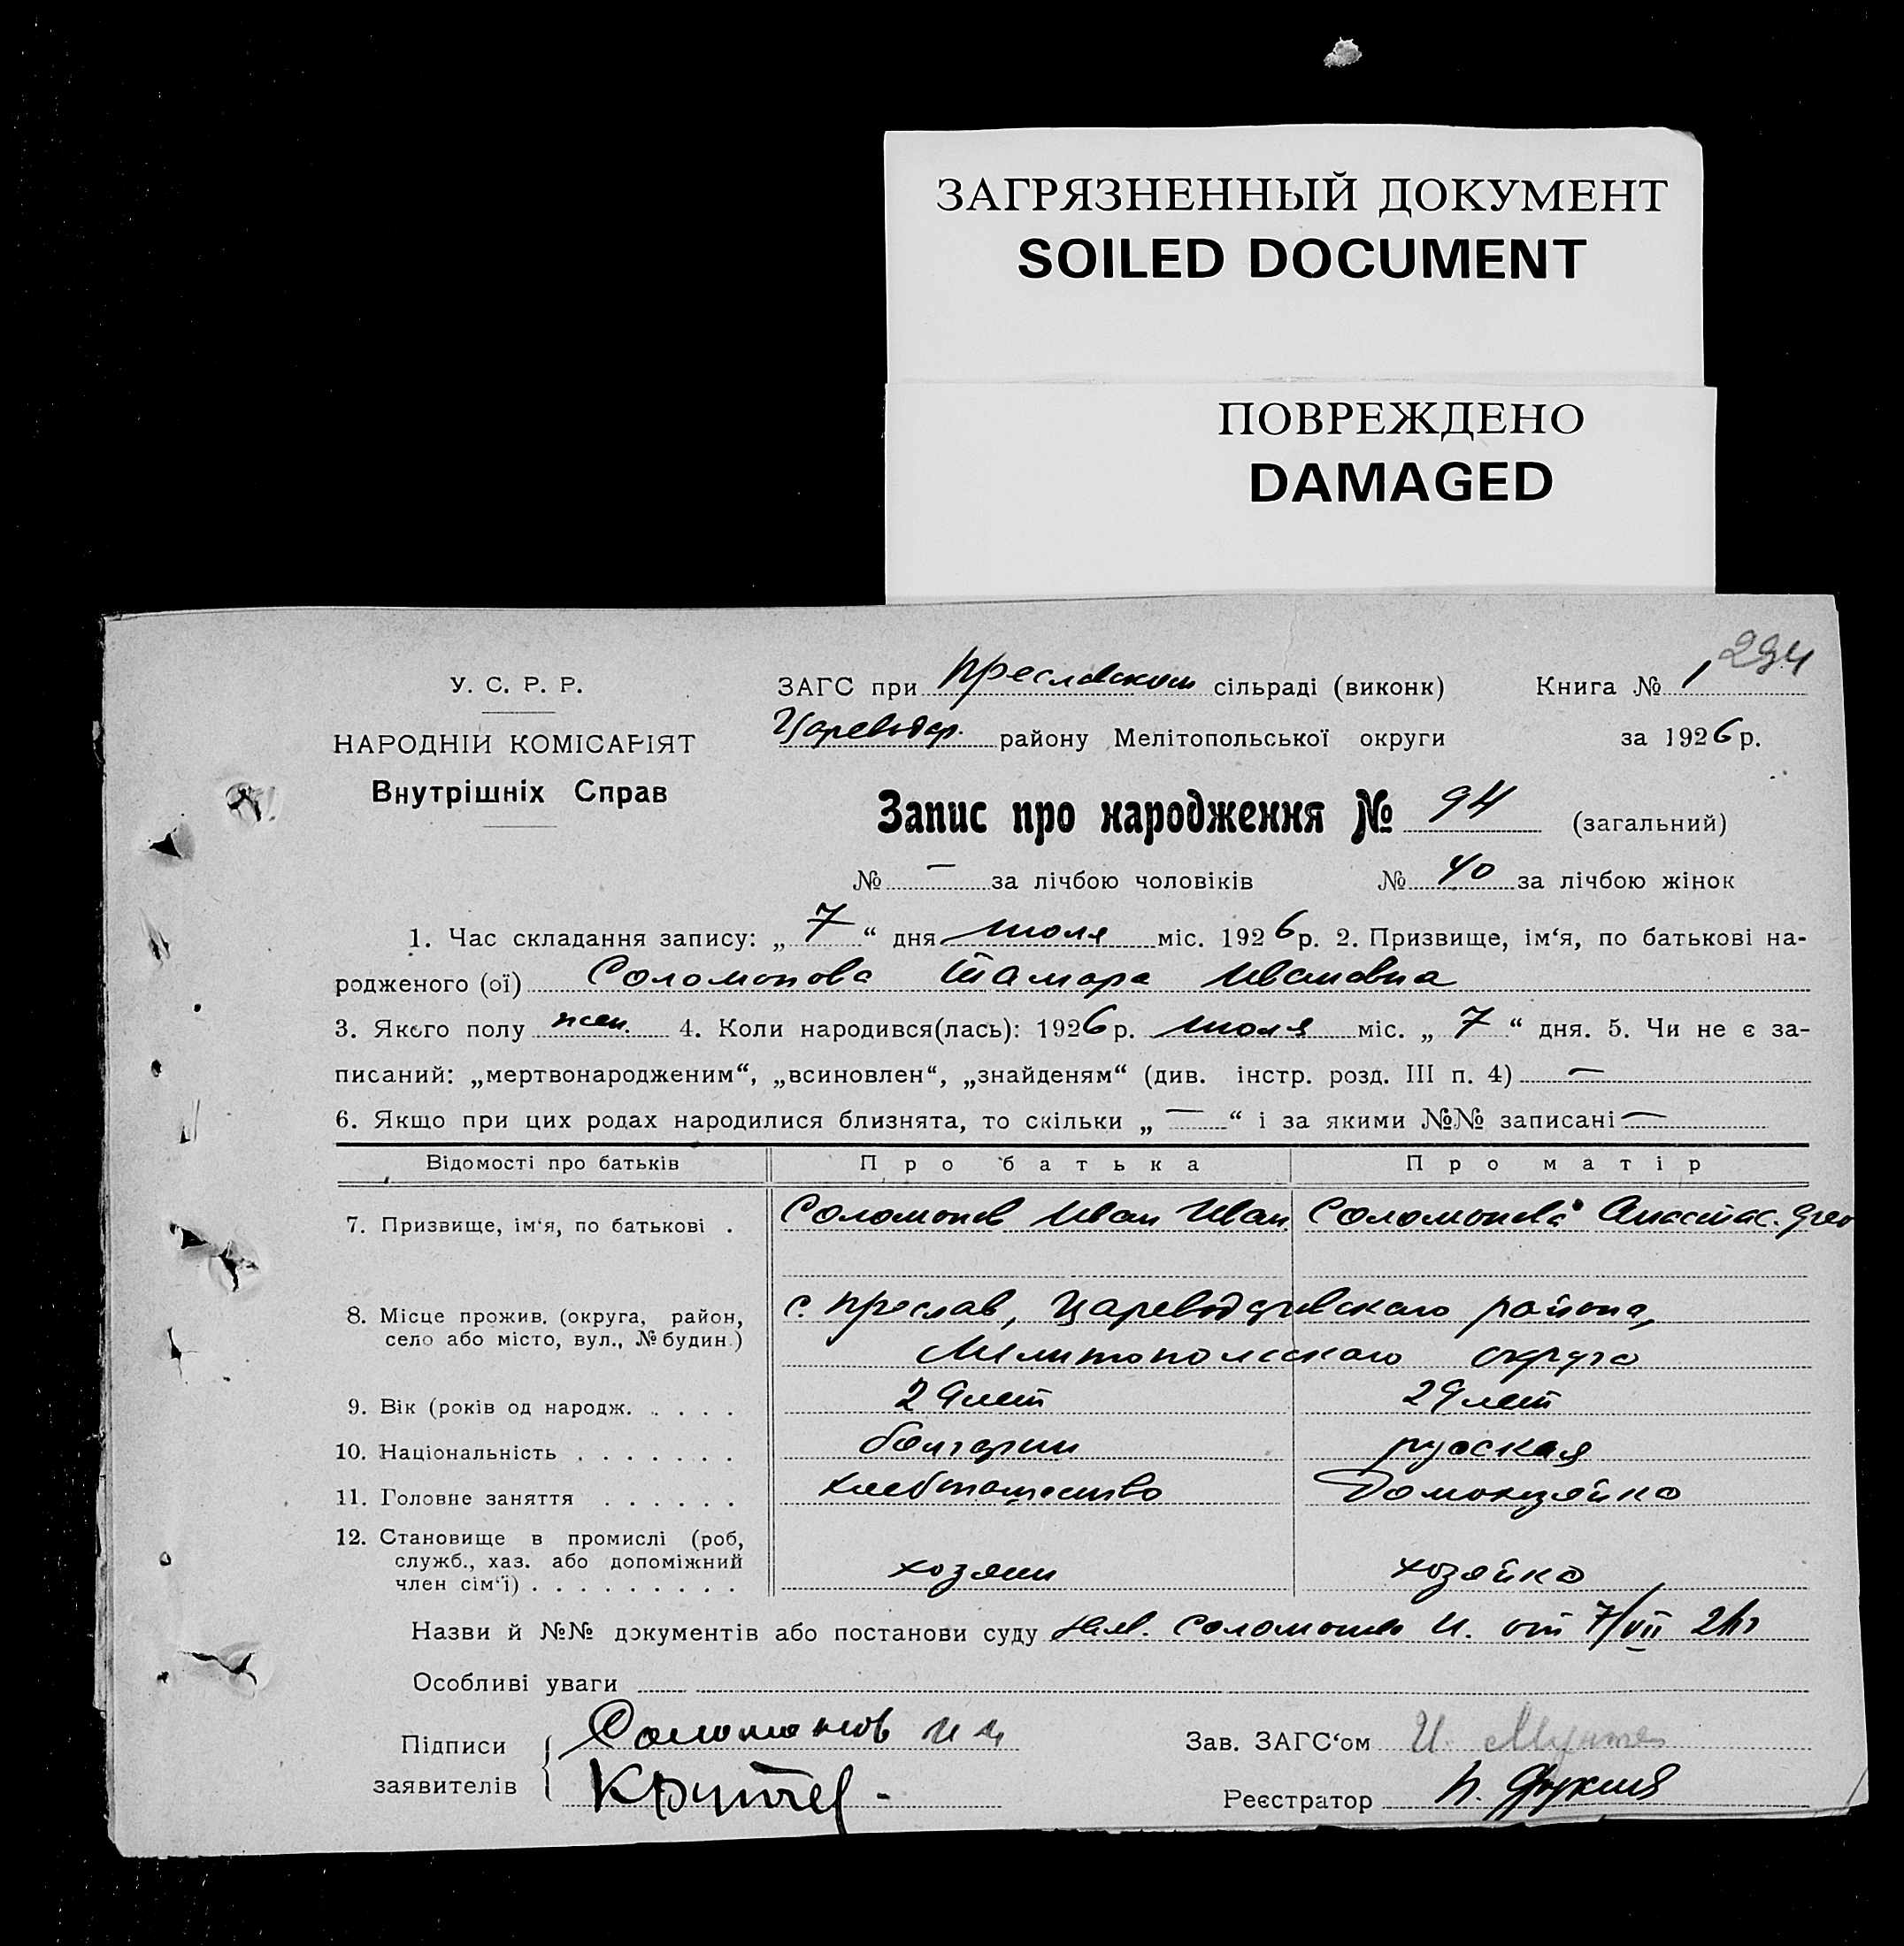 ЗАГРЯЗНЕННЫЙ ДОКУМЕНТ
SOILED DOCUMENT
ПОВРЕЖДЕНО
DAMAGED
294
У. С. Р. Р.
НАРОДНІЙ КОМІСАРІЯТ
Внутрішніх Справ
ЗАГС при Преславском сільраді (виконк) Книга № 1
Цареводар. району Мелітопольської округи за 1926 р.
Запис про народження № 94 (загальний)
№ — за лічбою чоловіків № 40 за лічбою жінок
1. Час складання запису: „ 7 “ дня июля міс. 1926 р. 2. Призвище, ім‘я, по батькові на-
родженого (ої) Соломонова Тамара Ивановна
3. Якого полу жен. 4. Коли народився(лась): 1926 р. июля міс. „ 7 “ дня. 5. Чи не є за-
писаний: „мертвонародженим“, „всиновлен“, „знайденям“ (див. інстр. розд. III п. 4) —
6. Якщо при цих родах народилися близнята, то скільки „ — “ і за якими №№ записані —
Відомості про батьків Про батька Про матір
7. Призвище, ім‘я, по батькові . Соломонов Иван Иван. Соломонова Анастас.
8. Місце прожив. (округа, район, село або місто, вул., № будин.) с. Преслав, Цареводаровского района,
Мелитопольского округа
9. Вік (років од народж. . . . . 29 лет 29 лет
10. Національність . . . . . . . болгарин русская
11. Головне заняття . . . . . . хлебопашество Домохозяйка
12. Становище в промислі (роб, служб., хаз. або допоміжний член сім‘ї) . . . . . . . . . хозяин хозяйка
Назви й №№ документів або постанови суду заяв. Соломонова И. от 7/VII
Особливі уваги
Підписи заявителів Соломонов И И
Зав. ЗАГС‘ом И.
Реєстратор